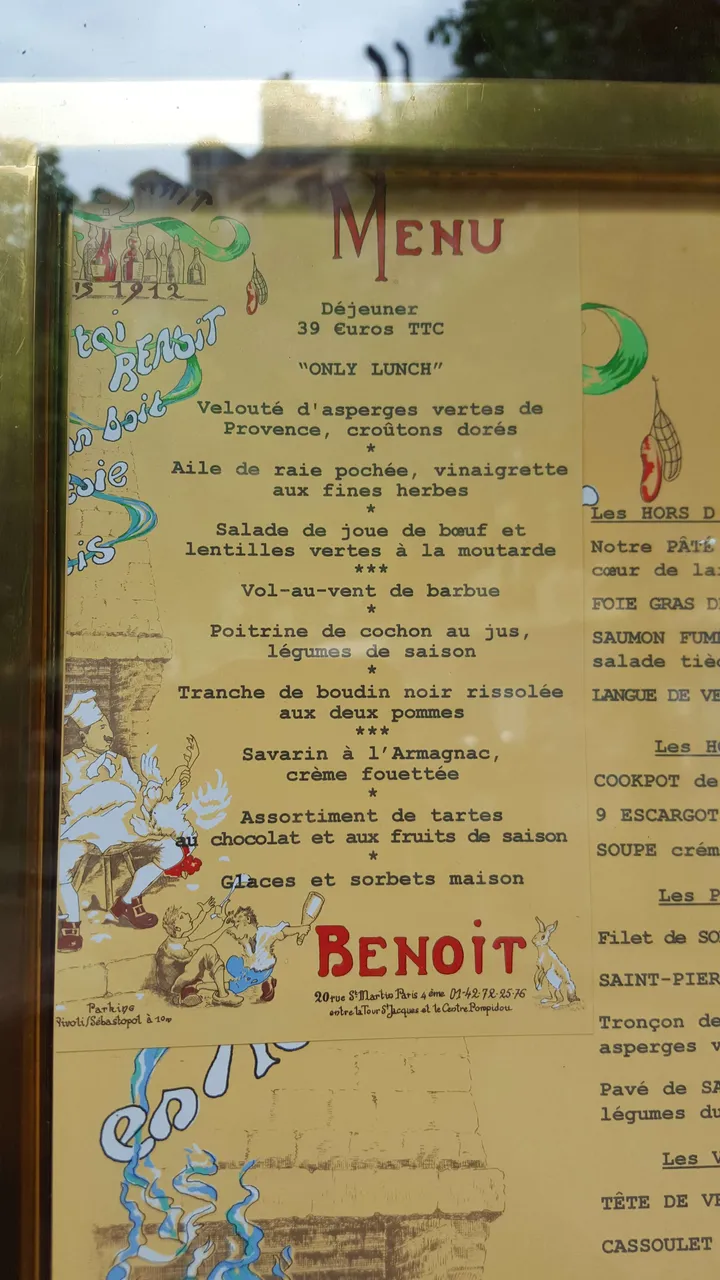 MENU
1912
Déjeuner
39 €uros TTC
“ONLY LUNCH”
toi
BENOIT
boit
Velouté d'asperges vertes de
Provence, croûtons dorés
*
Aile de raie pochée, vinaigrette
aux fines herbes
*
Salade de joue de bœuf et
lentilles vertes à la moutarde
***
Vol-au-vent de barbue
*
Poitrine de cochon au jus,
légumes de saison
*
Tranche de boudin noir rissolée
aux deux pommes
***
Savarin à l’Armagnac,
crème fouettée
*
Assortiment de tartes
au chocolat et aux fruits de saison
*
Glaces et sorbets maison
BENOIT
20 rue St Martin Paris 4ème 01-42-72-25-76
entre la Tour St Jacques et le Centre Pompidou
Parking
Rivoli/Sébastopol à 10m
en
Les HORS D
Notre PÂTÉ
cœur de la
FOIE GRAS D
SAUMON FUM
salade tiè
LANGUE DE VE
Les H
COOKPOT de
9 ESCARGOT
SOUPE crém
Les P
Filet de SO
SAINT-PIER
Tronçon de
asperges v
Pavé de SA
légumes du
Les V
TÊTE DE VE
CASSOULET